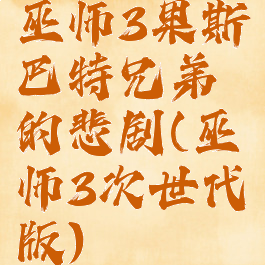 巫师3果斯
巴特兄弟
的悲剧(巫
师3次世代
版)